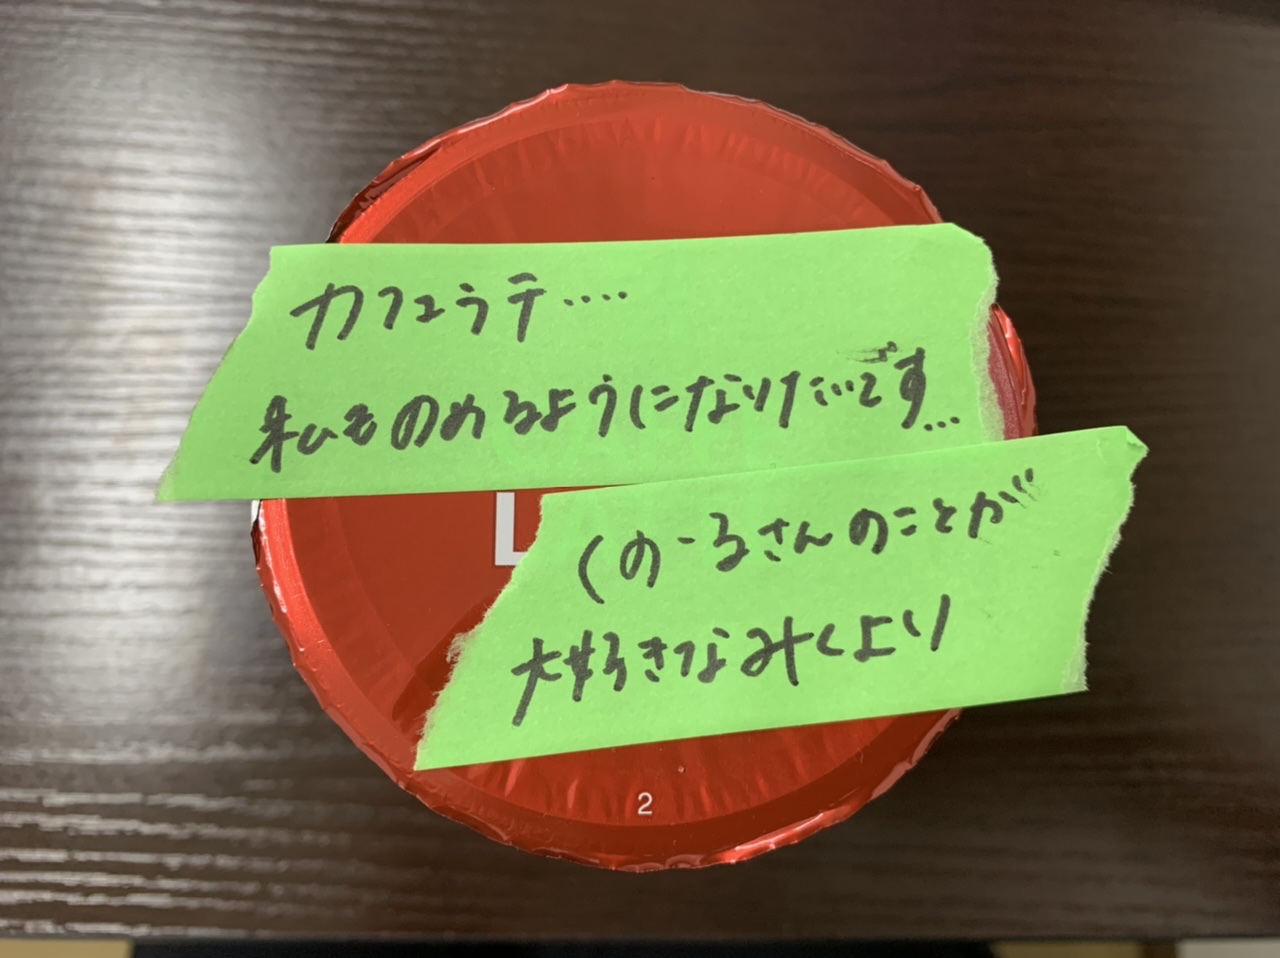 カフェラテ....
私ものめるようになりたいです...
L
(のーるさんのことが
大好きなみくより
2